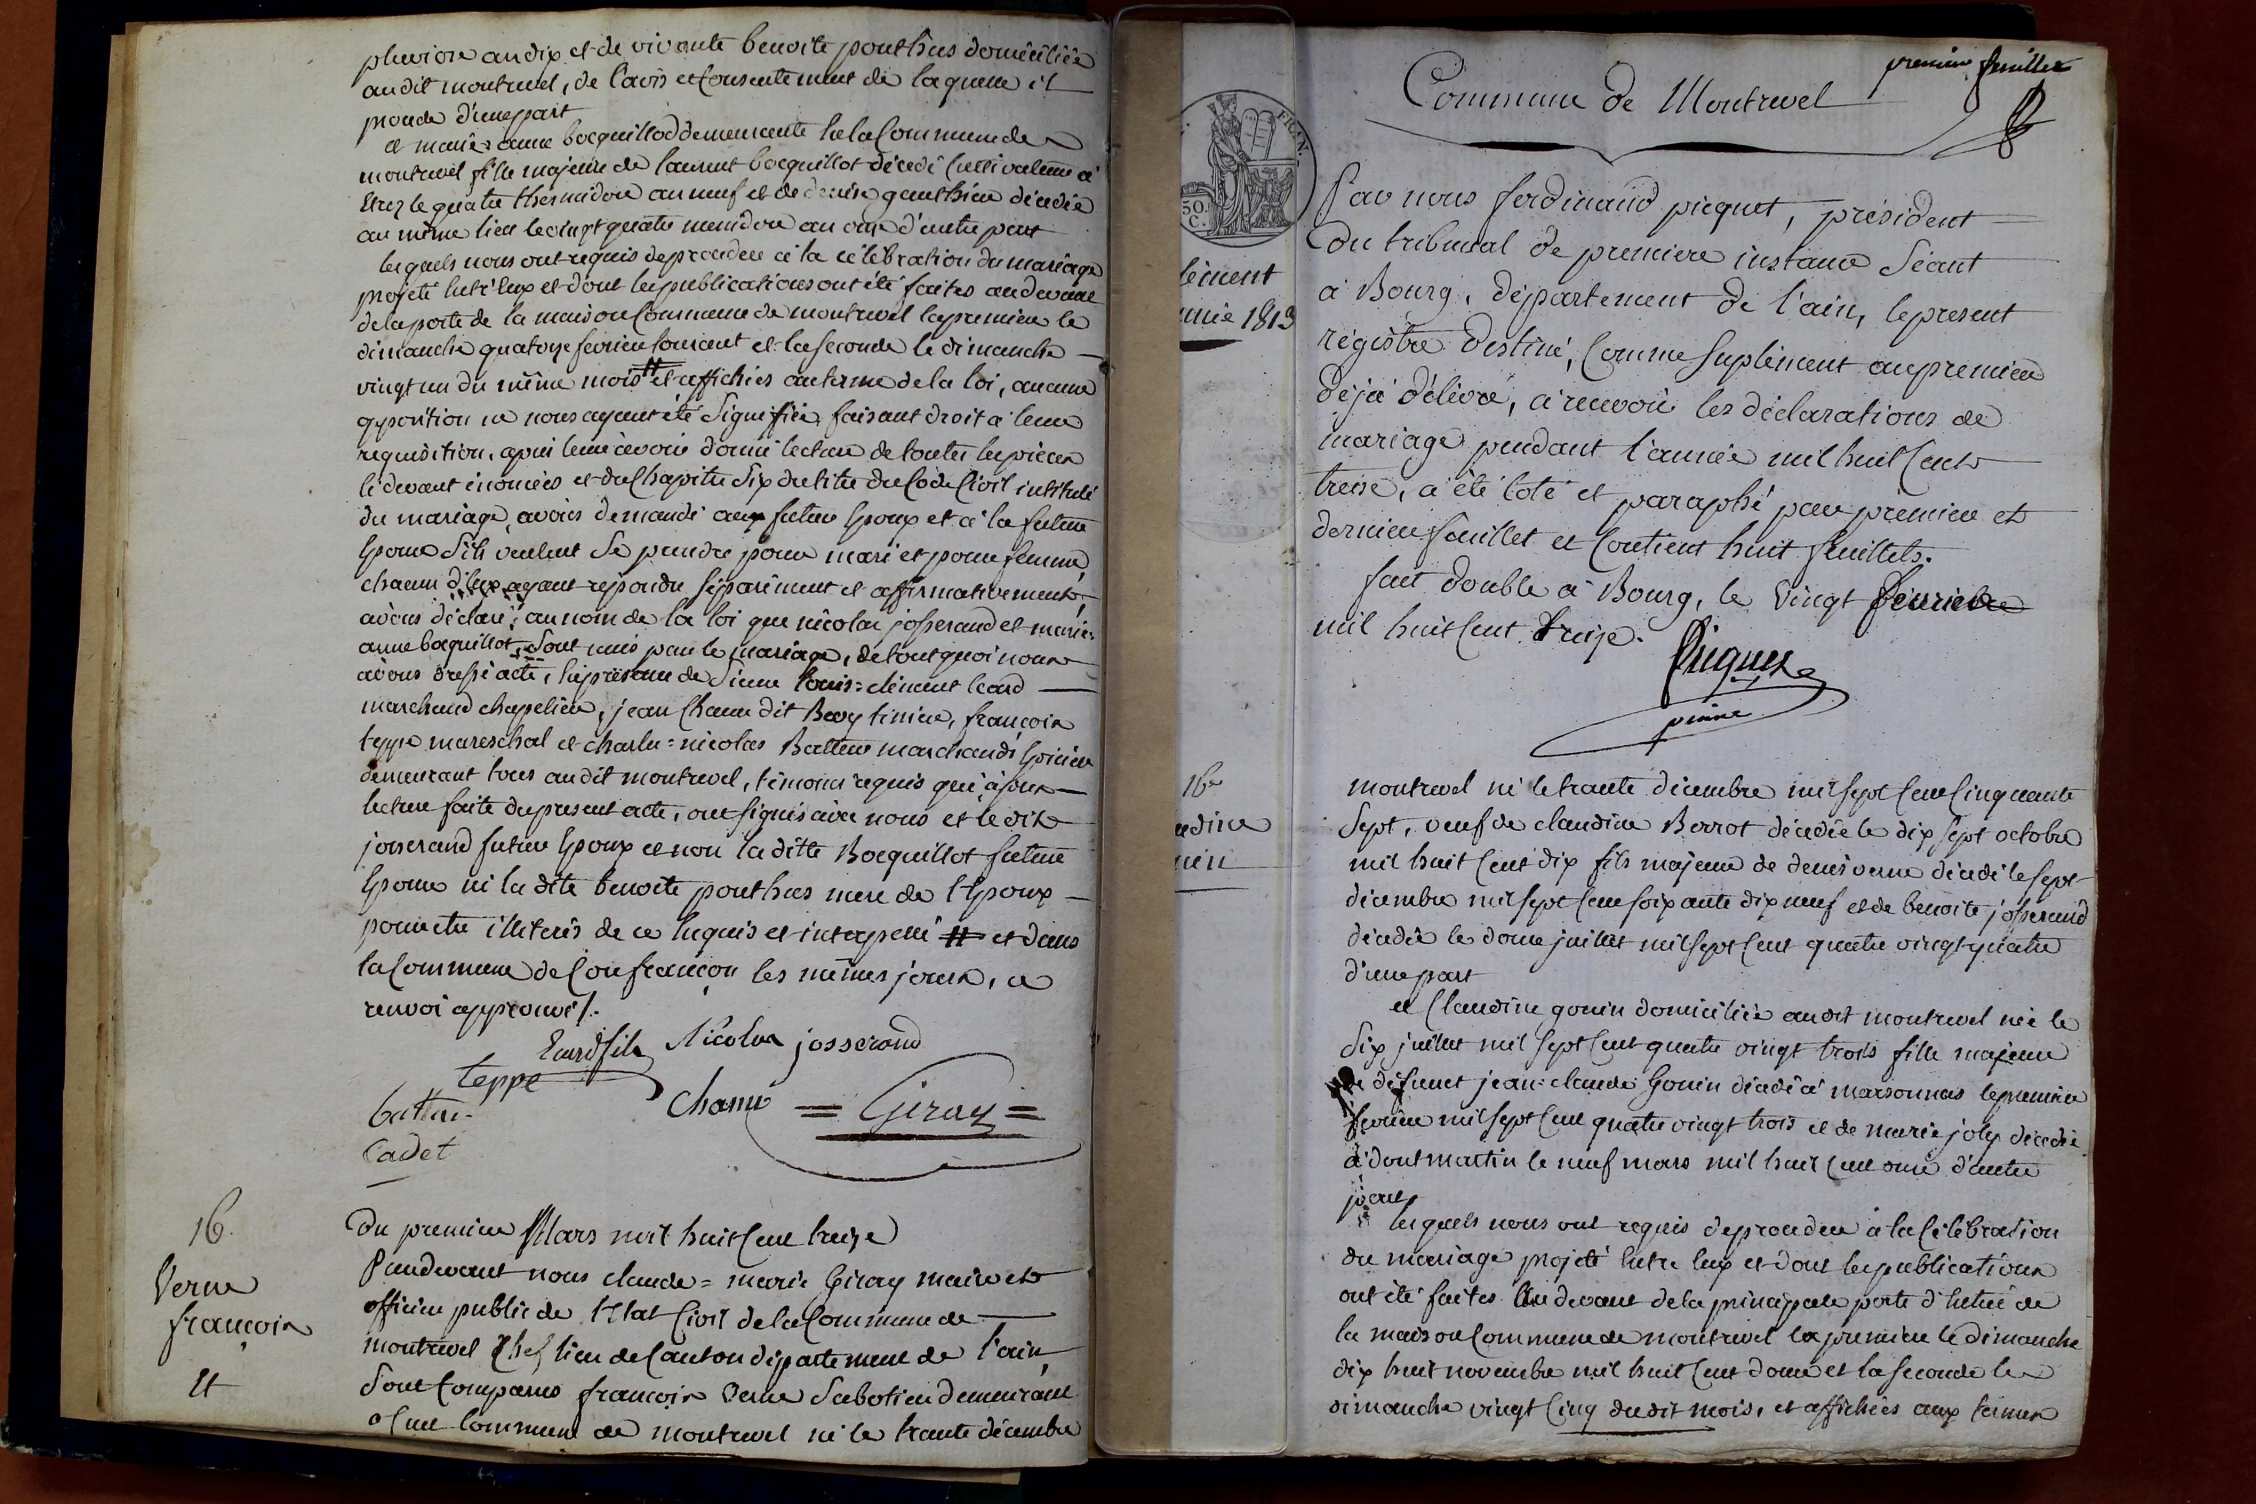 pluviose an dix et de vivante benoite pouthus domiciliée
au dit montrevel, de l'avis et Consentement de laquelle il
procede d'une part
et marie anne bocquillod demeurante en la Commune de
montrevel fille majeure de laurent bocquillot décedé Cultivateur à
Etrez le quatre thermidor an neuf et de denise gauthier décedée
au même lieu le vingt quatre messidor an onze d'autre part
lesquels nous ont requis de proceder à la célébration du mariage
projeté entr'eux et dont les publications ont été faites au devant
de la porte de la maison Commune de montrevel la premiere le
dimanche quatorze fevrier Courant et la seconde le dimanche
vingt un du même mois # et affichées au terme de la loi, aucune
opposition ne nous ayant été Signifiée, faisant droit à leur
requisition, après leur avoir donné lecture de toutes les pièces
ci devant énoncées et du Chapitre Six du titre du Code Civil intitulé
du mariage, avons demandé aux futur Epoux et à la future
Epouse S'ils veulent Se prendre pour mari et pour femme,
chacun d'Eux ayant repondu séparément et affirmativement,
avons déclaré au nom de la loi que nicolas josserand et marie=
anne bocquillot, Sont unis par le mariage, de tout quoi nous
avons dressé acte, En présence de Sieur Louis=clément Ecard
marchand chapelier, jean Chanu dit Bevy tinier, francois
teppe mareschal et charles=nicolas Battur marchand Epicier
demeurant tous au dit montrevel, témoins requis qui après
lecture faite du present acte, ont signés avec nous et le dit
josserand futur Epoux et non la ditte Bocquillot future
Epouse ni la dite benoite pouthus mere de l'Epoux
pour etre illeterés de ce Enquis et interpellé # et dans
la Commune de Confrançon les mêmes jours, ce
renvoi approuvé /.
Ecard fils Nicolas josserand
teppe
battur
Cadet
Chanu = Giray =
16.
Verne
françois
Et
Du premier Mars mil huit Cent treize
Pardevant nous claude=marie Giray maire et
officier public de l'Etat Civil de la Commune de
montrevel Chef lieu de Canton département de l'ain
Sont Comparus françois Verne Sabotier demeurant
en une Commune de montrevel né le trente décembre
premier feuillet
Commune de Montrevel
Par nous ferdinand picquet, président
du tribunal de premiere instance Séant
à Bourg, département de l'ain, le present
régistre destiné, Comme Suplément au premier
déjà délivré, à recevoir les déclarations de
mariage pendant l'année mil huit Cent
treise, a été coté et paraphé par premier et
dernier feuillet et Contient huit feuillets.
fait double à Bourg, le Vingt fevrier
mil huit Cent treize.
Picquet
FRAN.
50.
C.
lément
nnée 1813
16e
udine
uin
montrevel né le trente décembre mil sept Cent Cinquante
Sept, veuf de claudine Borrot décedée le dix Sept octobre
mil huit Cent dix fils majeur de denis verne décedé le sept
décembre mil sept Cent soixante dix neuf et de benoite josserand
décedée le douze juillet mil sept Cent quatre vingt quatre
d'une part
et Claudine gouin domiciliée au dit montrevel née le
Six juillet mil sept Cent quatre vingt trois fille majeure
de défunct jean=claude Gouin décedé à marsonnas le premier
fevrier mil sept Cent quatre vingt trois et de marie joly décedée
à domtmartin le neuf mars mil huit Cent onze d'autre
part
lesquels nous ont requis de proceder à la Célébration
du mariage projeté Entre Eux et dont les publications
ont été faites Au devant de la principale porte d'Entrée de
la maison Commune de montrevel la premiere le dimanche
dix huit novembre mil huit Cent douze et la seconde le
dimanche vingt Cinq du dit mois, et affichées aux termes